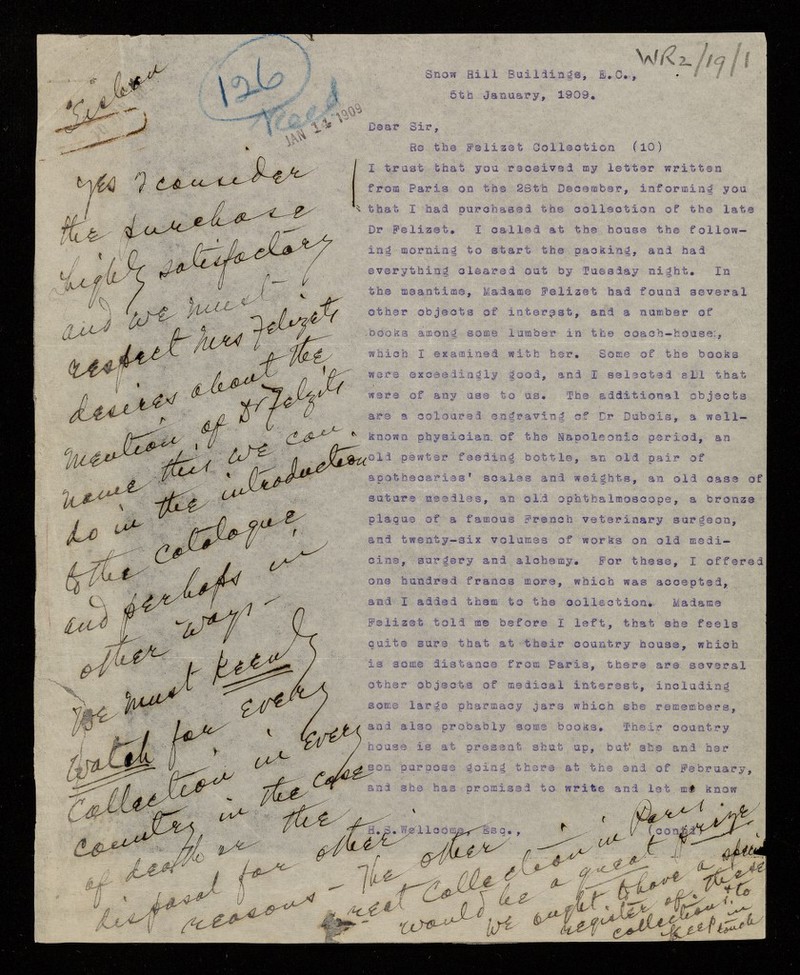 WR2/19/1
126
Recd
JAN 11 1909
Snow Hill Buildings, E.C.,
5th January, 1909.
Dear Sir,
Re the Felizet Collection (10)
I trust that you received my letter written
from Paris on the 28th December, informing you
that I had purchased the collection of the late
Dr Felizet. I called at the house the follow-
ing morning to start the packing, and had
everything cleared out by Tuesday night. In
the meantime, Madame Felizet had found several
other objects of interest, and a number of
books among some lumber in the coach-house,
which I examined with her. Some of the books
were exceedingly good, and I selected all that
were of any use to us. The additional objects
are a coloured engraving of Dr Dubois, a well-
known physician of the Napoleonic period, an
old pewter feeding bottle, an old pair of
apothecaries' scales and weights, an old case of
suture needles, an old ophthalmoscope, a bronze
plaque of a famous French veterinary surgeon,
and twenty-six volumes of works on old medi-
cine, surgery and alchemy. For these, I offered
one hundred francs more, which was accepted,
and I added them to the collection. Madame
Felizet told me before I left, that she feels
quite sure that at their country house, which
is some distance from Paris, there are several
other objects of medical interest, including
some large pharmacy jars which she remembers,
and also probably some books. Their country
house is at present shut up, but she and her
son purpose going there at the end of February,
and she has promised to write and let me know
H.S.Wellcome, Esq., (contd)
yes I consider
the purchase
highly satisfactory
and we must
respect Mrs Felizets
desires about the
mention of Dr Felizets
name this we can
do in the introduction
to the catalogue
and perhaps in
other ways -
We must keenly
watch for every
collection in every
country in the case
of death or the
disposal for other
reasons - The other
great collection in Paris
would be a great prize
We ought to have a
register of these
collections & to
keep in touch